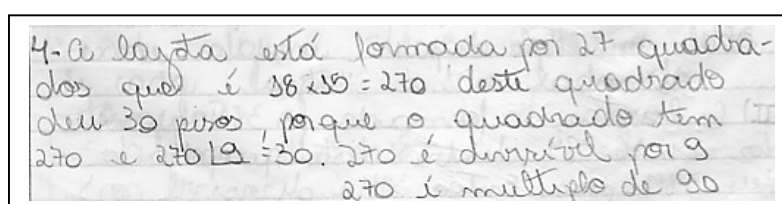 4- a lajota está formada por 27 quadra-
dos que é 18 x 15 = 270 deste quadrado
deu 30 pisos, porque o quadrado tem
270 e 270 | 9 = 30. 270 é divisível por 9
270 é multiplo de 90